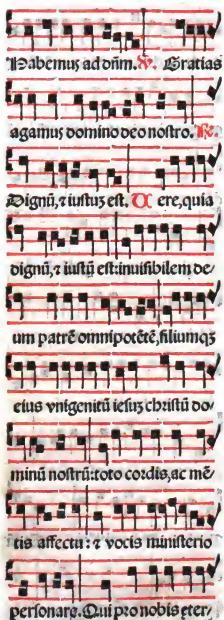 Habemus ad dñm. ℣. Gratias
agamus domino deo nostro. ℟.
Dignũ, ⁊ iustuʒ est. Uere, quia
dignũ, ⁊ iustũ est: inuisibilem de
um patrẽ omnipotẽtẽ, filiumqʒ
eius vnigenitũ iesuʒ christũ do
minũ nostrũ: toto cordis, ac mẽ
tis affectu: ⁊ vocis ministerio
personare. Qui pro nobis eter/